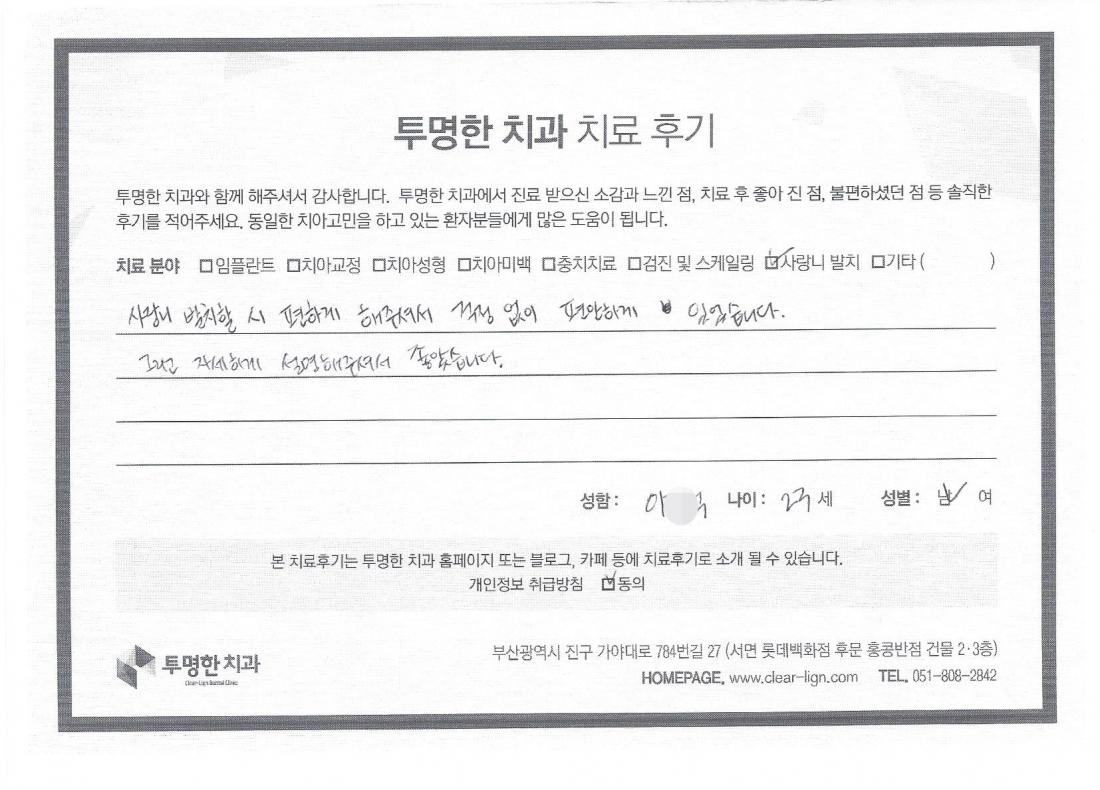 투명한 치과 치료 후기
투명한 치과와 함께 해주셔서 감사합니다. 투명한 치과에서 진료 받으신 소감과 느낀 점, 치료 후 좋아 진 점, 불편하셨던 점 등 솔직한
후기를 적어주세요. 동일한 치아고민을 하고 있는 환자분들에게 많은 도움이 됩니다.
치료 분야 □임플란트 □치아교정 □치아성형 □치아미백 □충치치료 □검진 및 스케일링 ☑사랑니 발치 □기타 ( )
사랑니 발치할 시 편하게 해주셔서 걱정 없이 편안하게 있었습니다.
그리고 자세하게 설명해주셔서 좋았습니다.
성함 : 이 나이 : 세 성별 : 남✓ 여
본 치료후기는 투명한 치과 홈페이지 또는 블로그, 카페 등에 치료후기로 소개 될 수 있습니다.
개인정보 취급방침 ☑동의
부산광역시 진구 가야대로 784번길 27 (서면 롯데백화점 후문 홍콩반점 건물 2·3층)
투명한 치과
Clear-Lign Dental Clinic
HOMEPAGE. www.clear-lign.com TEL. 051-808-2842